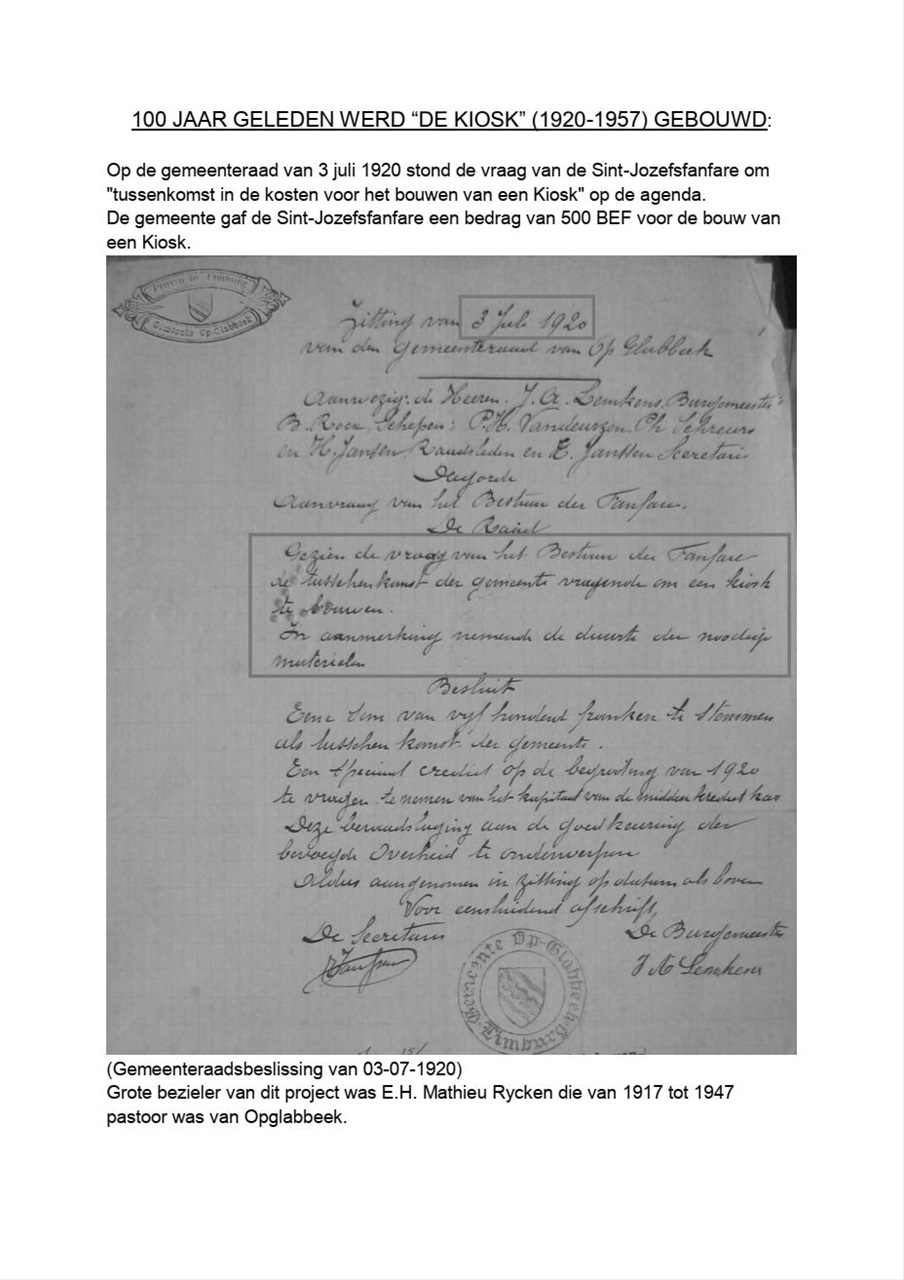 100 JAAR GELEDEN WERD “DE KIOSK” (1920-1957) GEBOUWD:
Op de gemeenteraad van 3 juli 1920 stond de vraag van de Sint-Jozefsfanfare om
"tussenkomst in de kosten voor het bouwen van een Kiosk" op de agenda.
De gemeente gaf de Sint-Jozefsfanfare een bedrag van 500 BEF voor de bouw van
een Kiosk.
Provincie Limburg
Gemeente Op-Glabbeek
Zitting van 3 Juli 1920
van den gemeenteraad van Op Glabbeek
Aanwezig: de Heeren. J. A. Lemkens, Burgemeester
B. Roex, Schepen: P. H. Vandeurzen, Ph Schreurs
en H. Jansen Raadsleden en E. Janssen Secretaris
Dagorde
Aanvraag van het Bestuur der Fanfare.
De Raad
Gezien de vraag van het Bestuur der Fanfare
de tusschenkomst der gemeente vragende om een kiosk
te bouwen.
In aanmerking nemende de duurte der noodige
materialen
Besluit
Eene som van vijf honderd franken te stemmen
als tusschenkomst der gemeente.
Een speciaal crediet op de begrooting van 1920
te vragen te nemen van het kapitaal van de midden krediet kas
Deze beraadslaging aan de goedkeuring der
bevoegde Overheid te onderwerpen
Aldus aangenomen in zitting op datum als boven
Voor eensluidend afschrift,
De Secretaris De Burgemeester
J A Lemkens
Gemeente Op-Glabbeek
(Gemeenteraadsbeslissing van 03-07-1920)
Grote bezieler van dit project was E.H. Mathieu Rycken die van 1917 tot 1947
pastoor was van Opglabbeek.